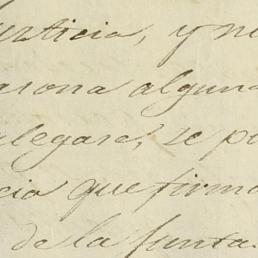 usticia, y ni
ersona alguna
alegare, se p
cia que firma
de la Junta